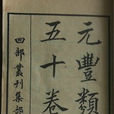 元豐類
五十卷
四部叢刊集部